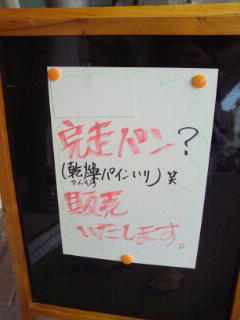 完走パン？
(乾燥パインいり)笑
かんそう
販売
いたします。